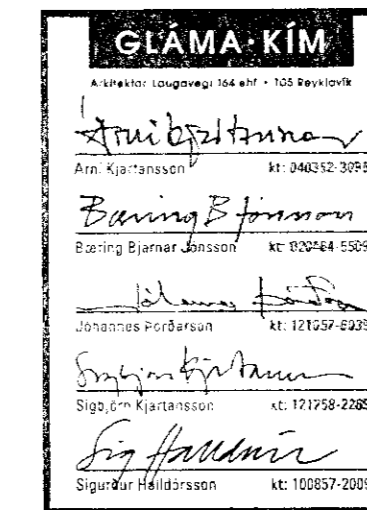 GLÁMA·KÍM
Arkitektar Laugavegi 164 ehf • 105 Reykjavík
Árni Kjartansson
Árni Kjartansson kt: 040352-3095
Bæring B Jónsson
Bæring Bjarnar Jónsson kt: 020464-5509
Jóhannes Þórðarson
Jóhannes Þórðarson kt: 121057-6939
Sigbjörn Kjartansson
Sigbjörn Kjartansson kt: 121758-2269
Sig Halldórs
Sigurður Halldórsson kt: 100857-2009